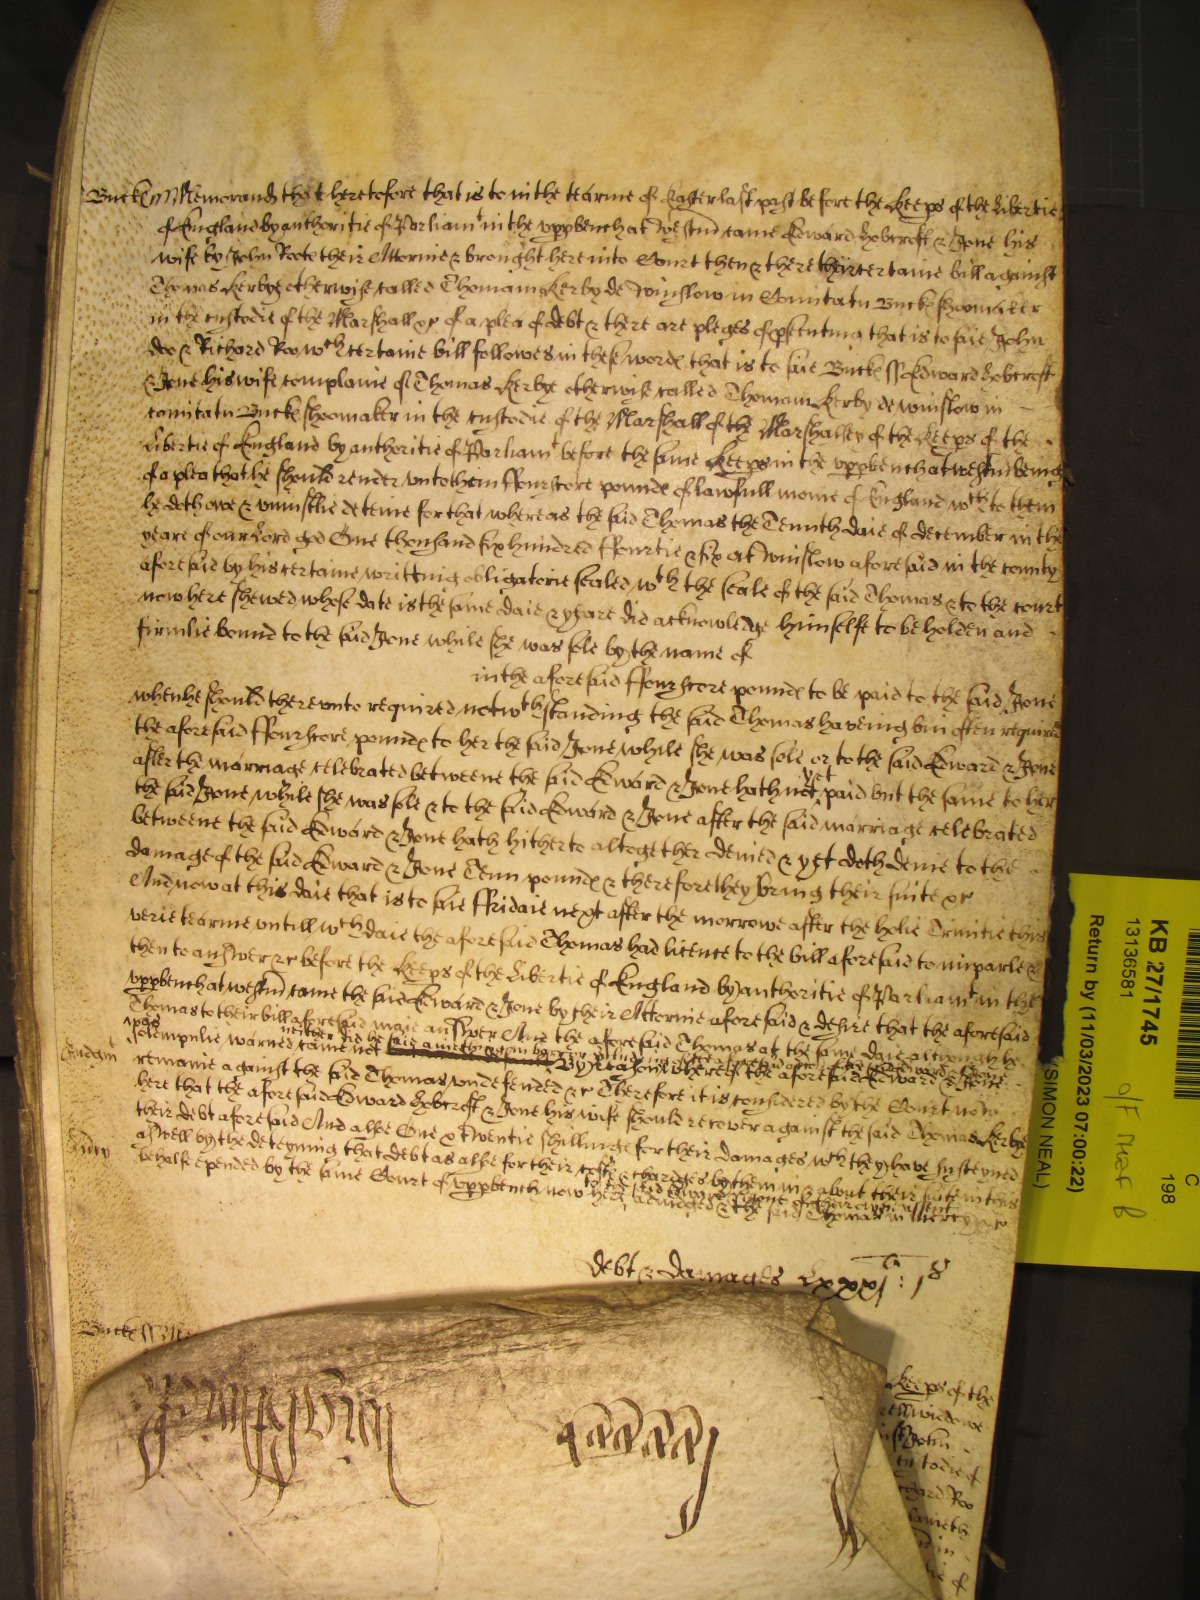 Bucks ss Memorand that heretofore that is to in the tearme of Easter last past before the Keeps of the Libertie
of England by authoritie of Parliamt in the uppbench at Westm came Edward Hobcroft & Jone his
wife by John Roote their Attornie & brought here into Court then & there their certaine bill against
Thomas Kerbye otherwise called Thomam Kerby de Winslow in Comitatu Bucks shoomaker
in the custodie of the Marshall &c of a plea of debt & there are pleges of psecuting that is to saie John
doo & Richard Roo wch certaine bill followes in these words that is to saie Bucks ss Edward Hobcroft
& Jone his wife complaine of Thomas Kerbye otherwise called Thomam Kerby de winslow in
comitatu Bucks shoomaker in the custodie of the Marshall of the Marshalsey of the Keeps of the
Libertie of England by authoritie of Parliamt before the same Keeps in the uppbench at westm being
of a plea that he should render unto them ffourscore pounds of lawfull monie of England wch to them
he deth owe & uniustlie deteine for that whereas the said Thomas the Tennth daie of december in the
yeare of our Lord god One thousand six hundred ffourtie & six at Winslow aforesaid in the county
aforesaid by his certaine writting obligatorie sealed wth the seale of the said Thomas & to the court
now here shewed whose date is the same daie & yeare did acknowledge himselfe to be holden and
firmlie bound to the said Jone while she was sole by the name of
in the aforesaid ffourscore pounds to be paid to the said Jone
when he should thereunto required notwthstanding the said Thomas haveing bin often required
the aforesaid ffourscore pounds to her the said Jone while she was sole or to the said Edward & Jone
after the marriage celebrated betweene the said Edward & Jone hath not yet paid but the same to her
the said Jone while she was sole & to the said Edward & Jone after the said marriage celebrated
betweene the said Edward & Jone hath hitherto altogether denied & yet doth denie to the
damage of the said Edward & Jone Tenn pounds & therefore they bring their suite &c
And now at this daie that is to saie ffridaie next after the morrowe after the holie Trinitie this
verie tearme untill wch daie the aforesaid Thomas had licence to the bill aforesaid to imparle &
then to answer &c before the Keeps of the Libertie of England by authoritie of Parliamt in the
uppbench at westm came the said Edward & Jone by their Attornie aforesaid & desire that the aforesaid
Thomas to their bill aforesaid maie answer And the aforesaid Thomas at the same daie although he
was solempnlie warned came not neither did he By reason whereof the aforesaid Edward & Jone
remaine against the said Thomas undefended &c Therefore it is considered by the Court now
here that the aforesaid Edward Hobcroft & Jone his wife should recover against the said Thomas Kerby
their debt aforesaid And alsoe One & Twentie shillings for their damages wch they have susteyned
aswell by the deteyning that debt as alsoe for their costs & chardges by them in & about their suite in this
behalfe expended by the same Court of uppbench now here to the said Edward & Jone of their own assent adiudged & the said Thomas in Mercy &c
debt & damages Lxxxj : js
Bucks ss
Keeps of the
John
custodie of
Richard Roo
KB 27/1745
13136581
Return by (11/03/2023 07:00:22)
(SIMON NEAL)
C
198